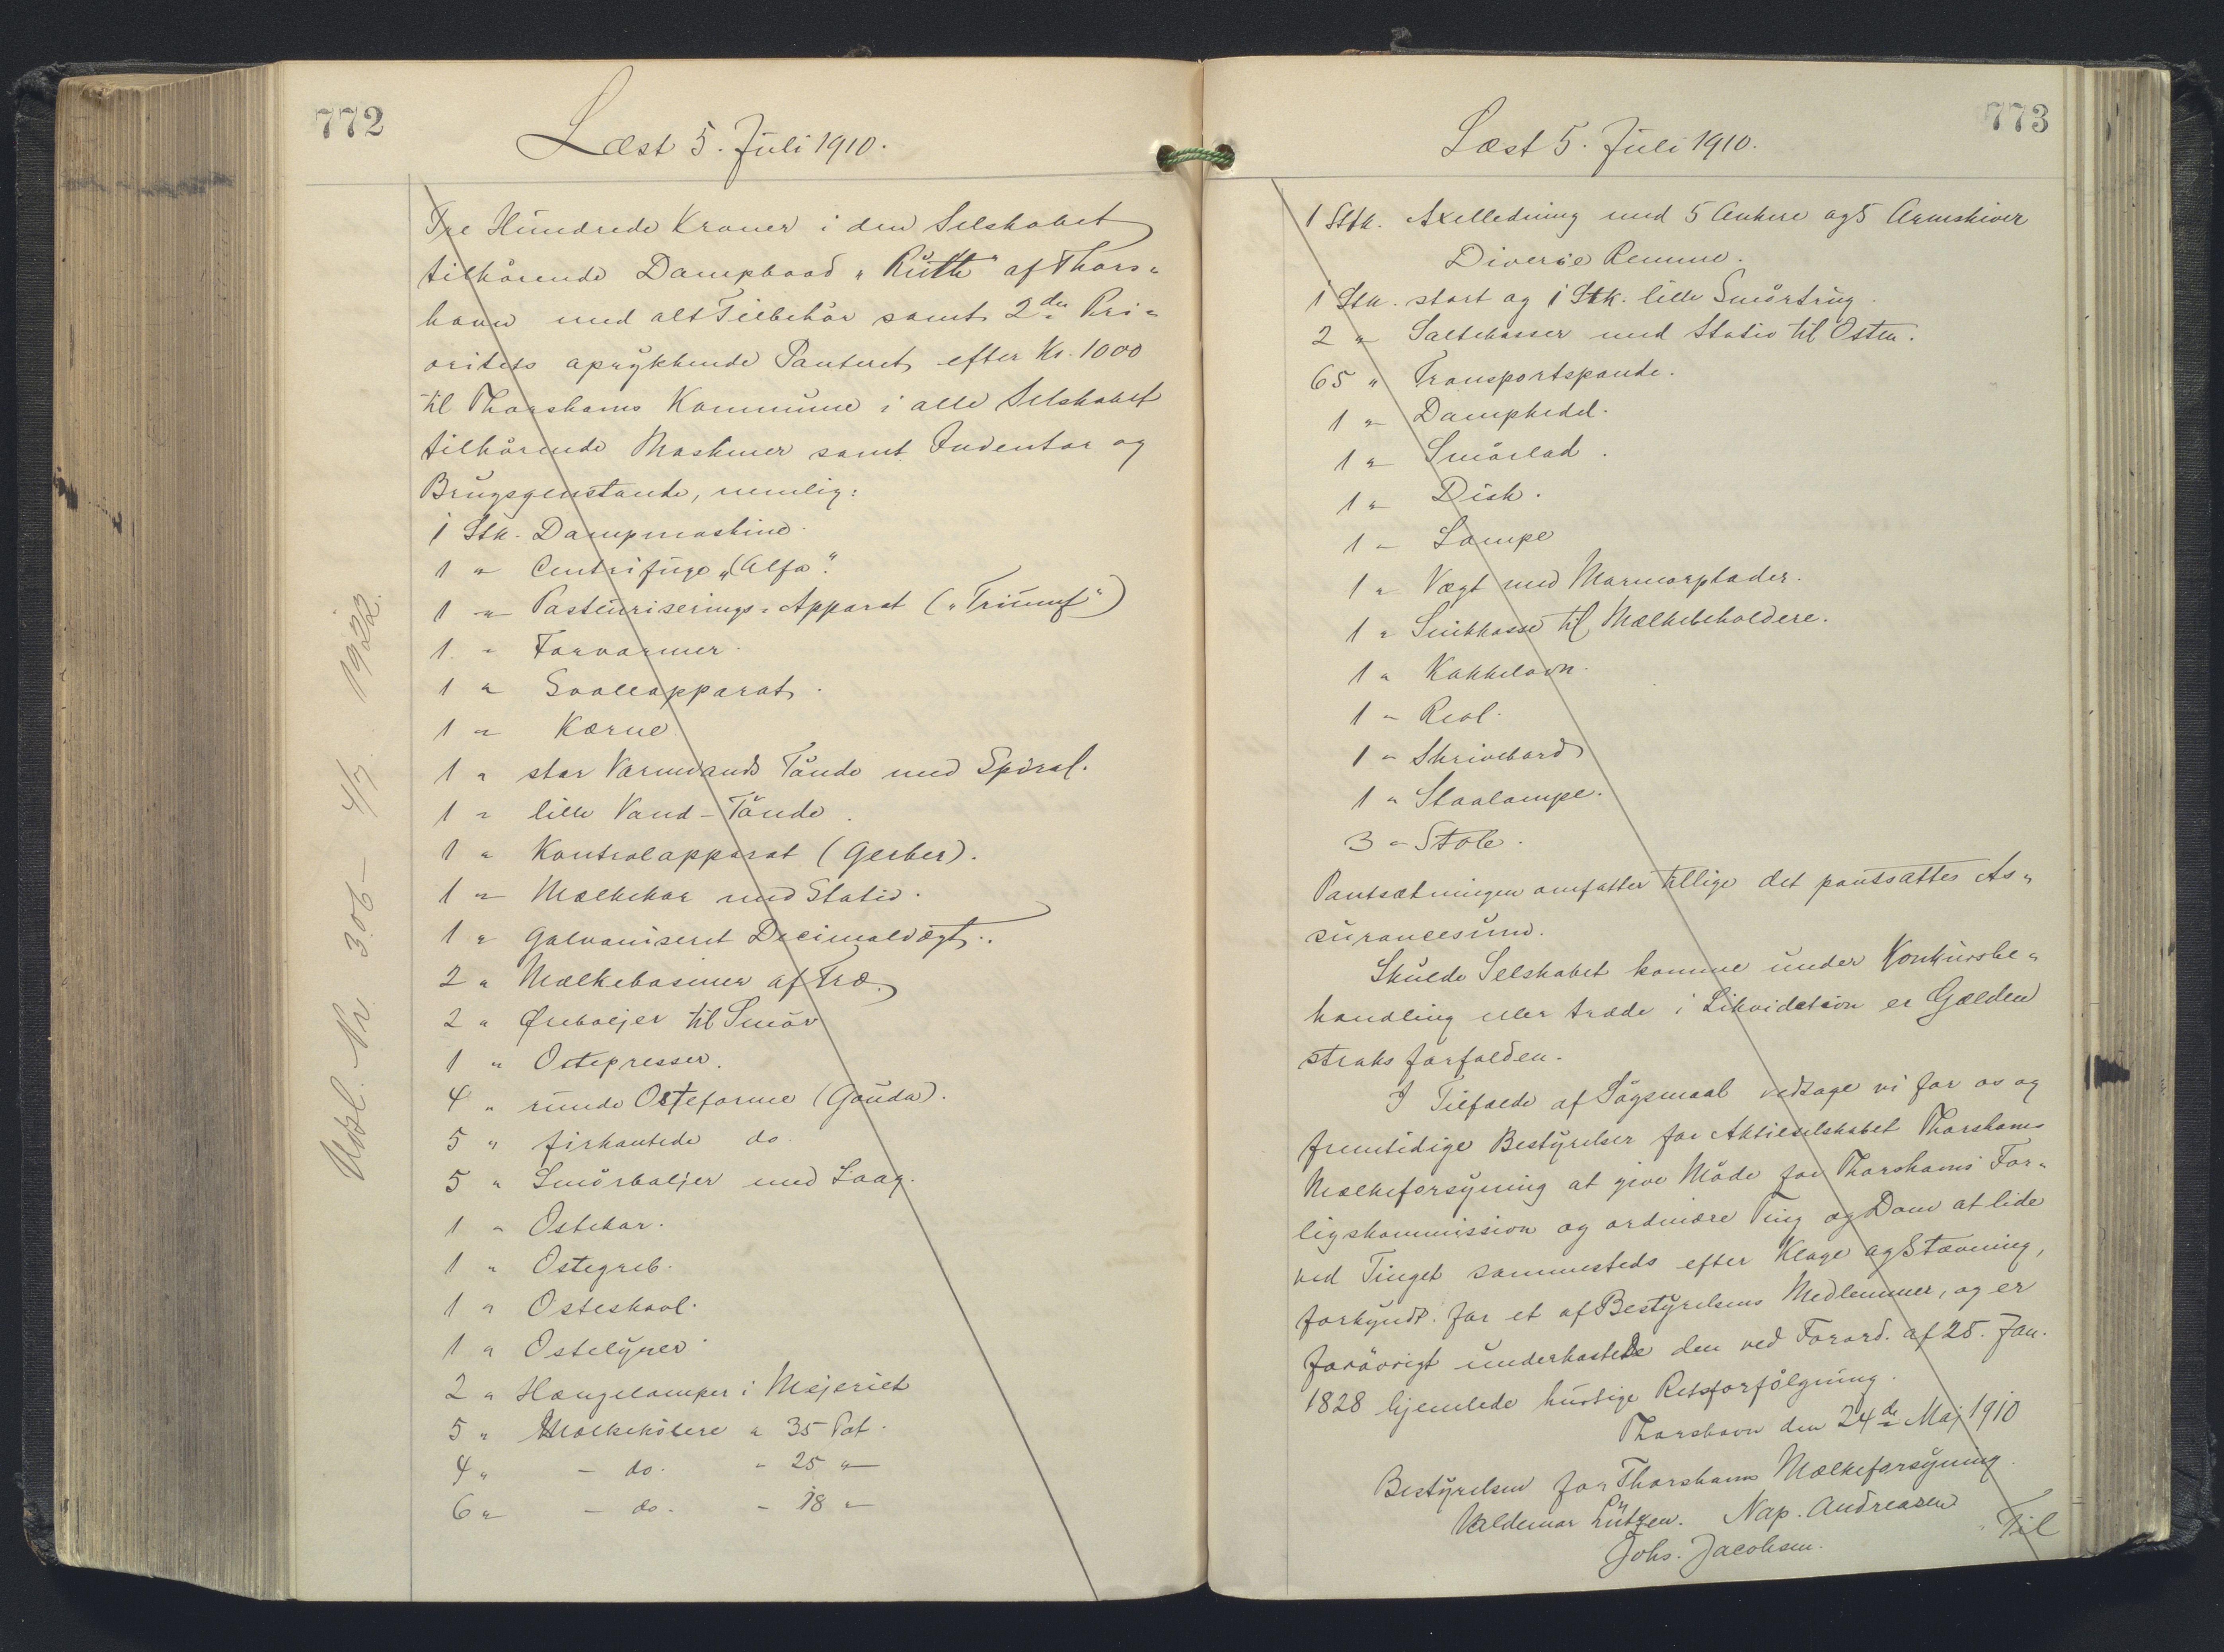 772
Læst 5. Juli 1910.
Tre Hundrede Kroner i den Selskabet
tilhørende Dampbaad „Ruth" af Thors-
havn med alt Tilbehør samt 2den Pri-
oritets oprykkende Panteret efter Kr. 1000
til Thorshavns Kommune i alle Selskabet
tilhørende Maskiner samt Inventar og
Brugsgenstande, nemlig:
1 Stk. Dampmaskine.
1 " Centrifuge „Alfa".
1 " Pasteuriserings-Apparat („Triumf")
1 " Forvarmer.
1 " Svaleapparat.
1 " Kærne.
1 " stor Varmvands Tønde med Spiral.
1 " lille Vand-Tønde.
1 " Kontrolapparat (Gerber).
1 " Mælkekar med Stativ.
1 " galvaniseret Decimalvægt.
2 " Mælkebasiner af Træ.
2 " Ørebaljer til Smør
1 " Ostepresser.
4 " runde Osteforme (Gouda).
5 " firkantede do.
5 " Smørbaljer med Laag.
1 " Ostekar.
1 " Ostegreb.
1 " Osteskovl.
1 " Ostelyrer.
2 " Hængelamper i Mejeriet
5 " Mælkekølere a 35 Pot.
4 " - do. - 25 "
6 " - do. - 18 "
Udsl. Nr. 306 - 4/7. 1922.
773
Læst 5. Juli 1910.
1 Stk. Axelledning med 5 Ankere og 5 Remskiver
Diverse Remme.
1 Stk. stort og 1 Stk. lille Smørtrug.
2 " Saltekasser med Stativ til Osten.
65 " Transportspande.
1 " Dampkedel.
1 " Smørlad.
1 " Disk.
1 " Lampe
1 " Vægt med Marmorplader.
1 " Sinkkasse til Mælkebeholdere.
1 " Kakkelovn.
1 " Reol.
1 " Skrivebord
1 " Staalampe.
3 " Stole.
Pantsætningen omfatter tillige det pantsattes As-
surancesum.
Skulde Selskabet komme under Konkursbe-
handling eller træde i Likvidation er Gælden
straks forfalden.
I Tilfælde af Søgsmaal vedtage vi for os og
fremtidige Bestyrelser for Aktieselskabet Thorshavns
Mælkeforsyning at give Møde for Thorshavns For-
ligskommission og ordinære Ting og Dom at lide
ved Tinget sammesteds efter Klage og Stævning,
forkyndt for et af Bestyrelsens Medlemmer, og er
forøvrigt underkastede den ved Forord. af 25. Jan.
1828 hjemlede hurtige Retsforfølgning.
Thorshavn den 24de Maj 1910
Bestyrelsen for Thorshavns Mælkeforsyning.
Valdemar Lützen. Nap. Andreasen
Johs. Jacobsen.
Til